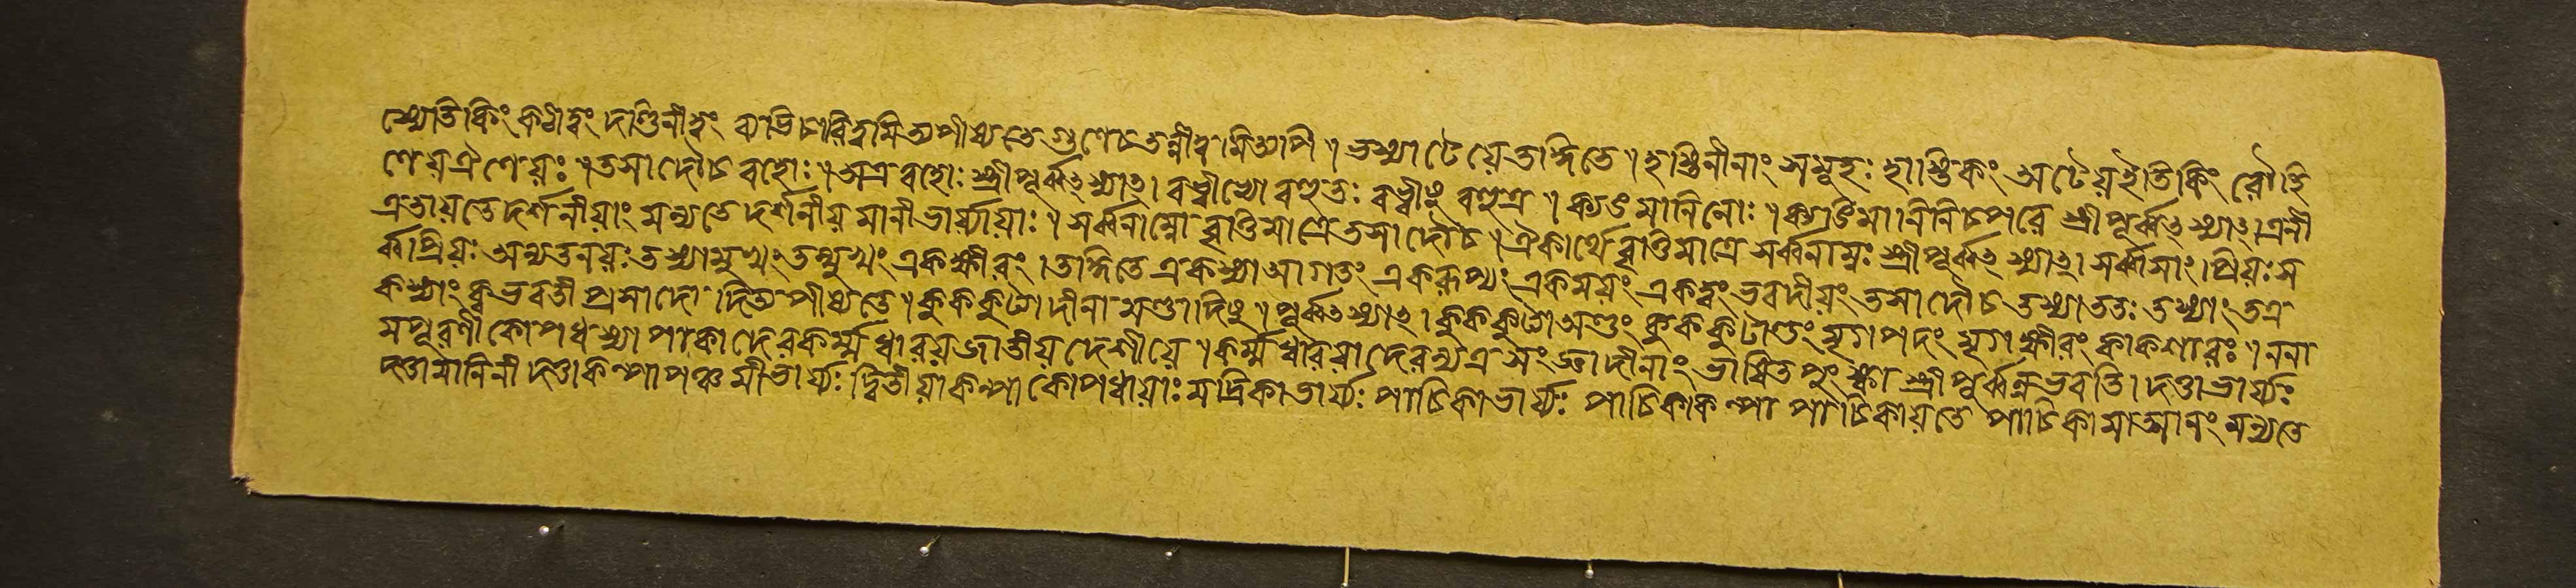 স্যেতি কিং কঠীত্বং দণ্ডিনীত্বং ব্যভিচারিত্বমিত্যপীষ্যতে গুণে চ তন্বীত্বমিত্যপি । তস্যাঢেয়ে তদ্ধিতে । হস্তিনীনাং সমূহঃ হাস্তিকং অঢেয় ইতি কিং রৌহি
ণেয় ঐণেয়ঃ । তসাদৌ চ বহোঃ । অত্র বহোঃ স্ত্রীপূর্ব্বত্ স্যাত্ । বহ্বীভ্যো বহুতঃ বহ্বীষু বহুত্র । ক্যঙমানিনোঃ । ক্যঙি মানিনি চ পরে স্ত্রীপূর্ব্বত্ স্যাত্ । এনী
এতায়তে দর্শনীয়াং মন্যতে দর্শনীয়মানী ভার্য্যায়াঃ । সর্ব্বনাম্নো বৃত্তিমাত্রে তসাদৌ চ । ঐকার্থে বৃত্তিমাত্রে সর্ব্বনাম্নঃ স্ত্রীপূর্ব্বত্ স্যাত্ । সর্ব্বাসাং প্রিয়ঃ স
র্ব্বপ্রিয়ঃ অন্যতনয়ঃ তস্যামুখং তন্মুখং একক্ষীরং । তদ্ধিতে একস্যা আগতং একরূপ্যং একময়ং একত্বং ভবদীয়ং তসাদৌ চ তস্যা ততঃ তস্যাং তত্র
কস্যাং কুত্র ভবতী প্রসাদো দিত্যপীষ্যতে । কুক্কুট্যাদীনামণ্ডাদিষু । পূর্ব্বত্ স্যাত্ । কুক্কুট্যা অণ্ডং কুক্কুটাণ্ডং মৃগপদং মৃগক্ষীরং কাকশাবঃ । ননা
মপূরণীকোপধস্যাপাকাদেরকর্ম্মধারয়জাতীয়দেশীয়ে । কর্ম্মধারয়াদেরন্যত্র সংজ্ঞাদীনাং ভাষিতপুংস্কা স্ত্রী পূর্ব্বন্ন ভবতি । দত্তাভার্য্যঃ
দত্তামানিনী দত্তাকল্পা পঞ্চমীভার্য্যঃ দ্বিতীয়াকল্পা কোপধায়াঃ মদ্রিকাভার্য্যঃ পাচিকাভার্য্যঃ পাচিকাকল্পা পাচিকায়তে পাচিকামাত্মানং মন্যতে